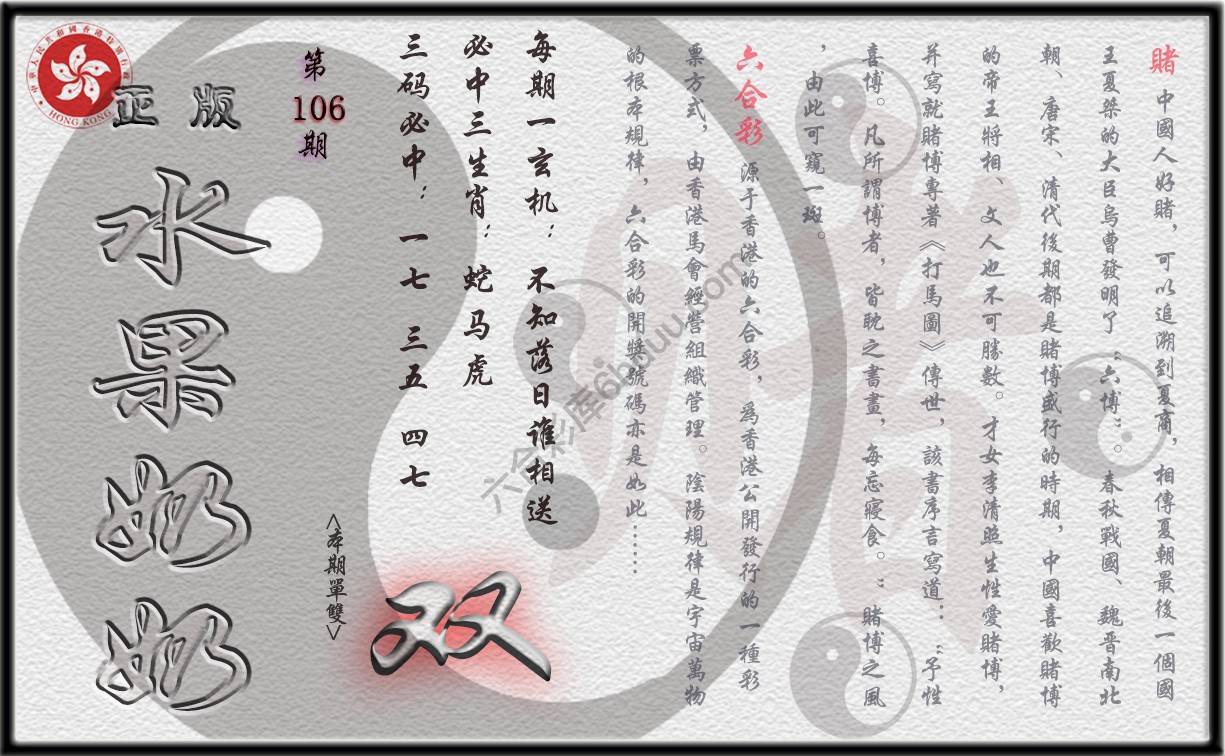 賭 中國人好賭，可以追溯到夏商，相傳夏朝最後一個國
王夏桀的大臣烏曹發明了“六博”。春秋戰國、魏晋南北
朝、唐宋、清代後期都是賭博盛行的時期，中國喜歡賭博
的帝王將相、文人也不可勝數。才女李清照生性愛賭博，
并寫就賭博專著《打馬圖》傳世，該書序言寫道：“予性
喜博。凡所謂博者，皆耽之書畫，每忘寢食。”賭博之風
，由此可窺一斑。
六合彩 源于香港的六合彩，爲香港公開發行的一種彩
票方式，由香港馬會經營組織管理。陰陽規律是宇宙萬物
的根本規律，六合彩的開獎號碼亦是如此……
每期一玄机：不知落日谁相送
必中三生肖：蛇马虎
三码必中：一七 三五 四七
第
106
期
<本期單雙>
双
正版
水果奶奶
中華人民共和國香港特別行政區
HONG KONG
六合彩库6hduu.com